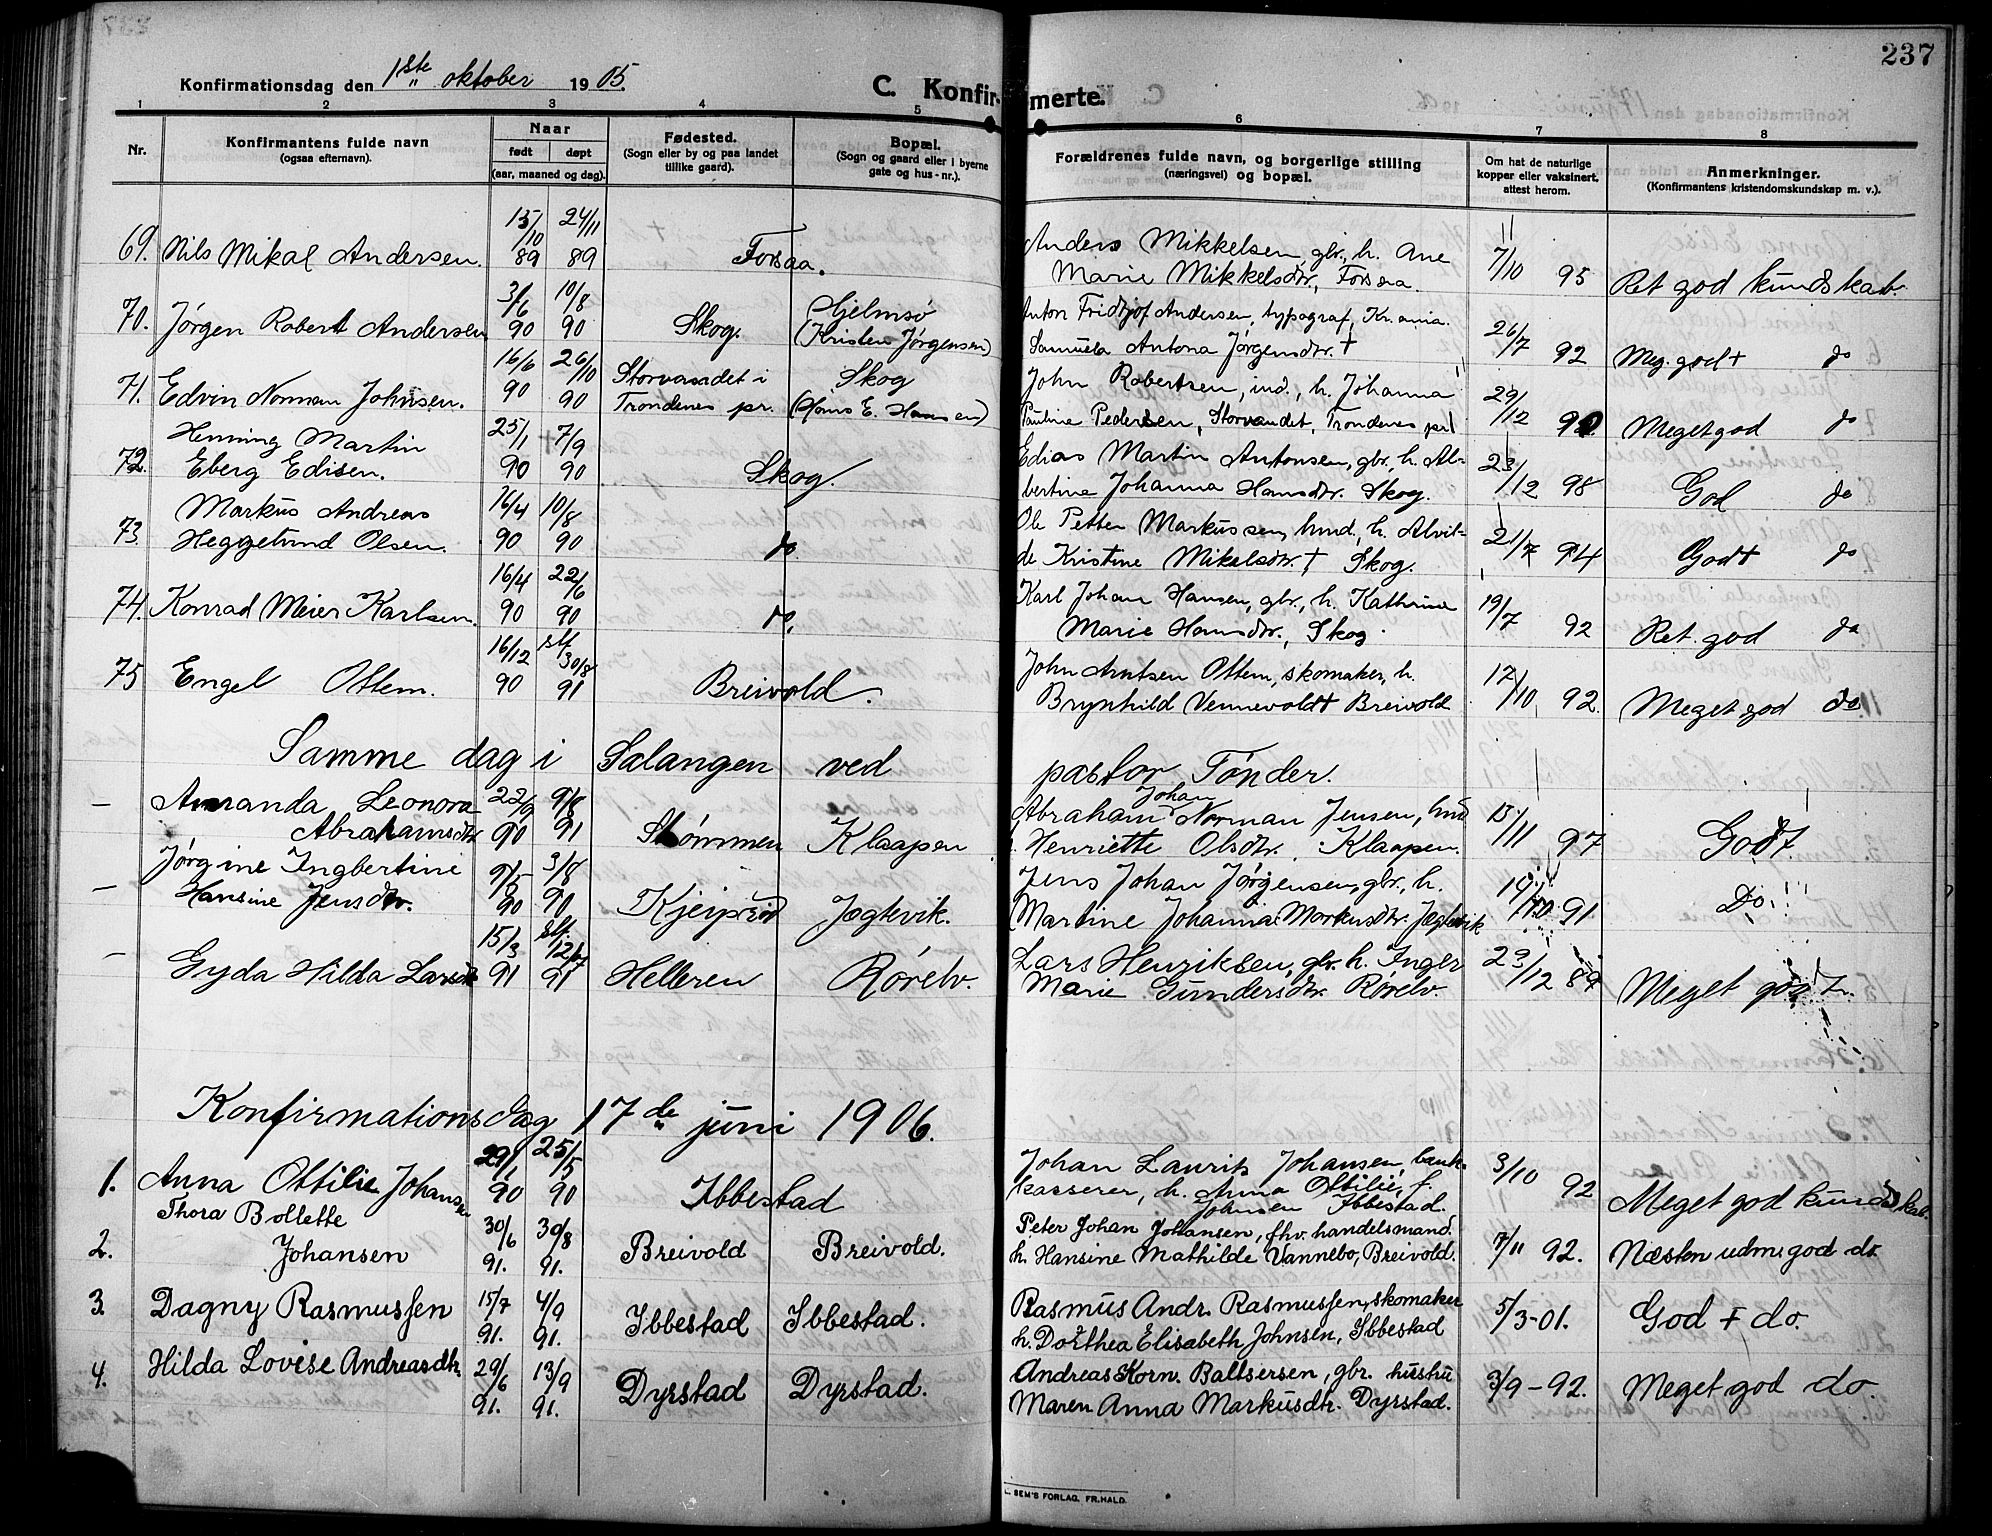 237
Konfirmationsdag den 1ste oktober 1905.
C. Konfirmerte.
1 2 3 4 5 6 7 8
Nr.
Konfirmantens fulde navn
(ogsaa efternavn).
Naar
født døpt
(aar, maaned og dag).
Fødested.
(Sogn eller by og paa landet
tillike gaard).
Bopæl.
(Sogn og gaard eller i byerne
gate og hus-nr.).
Forældrenes fulde navn, og borgerlige stilling
(næringsvei) og bopæl.
Om hat de naturlige
kopper eller vaksinert,
attest herom.
Anmerkninger.
(Konfirmantens kristendomskundskap m. v.).
15/10 24/11 Anders Mikkelsen, gbr., h. Ane
69. Nils Mikal Andersen. 89 89 Forsaa. Marie Mikkelsdtr., Forsaa. 7/10 95 Ret god kundskab.
3/6 10/8 Hjelmsø Anton Fridtjof Andersen, typograf, Kr.ania.
70. Jørgen Robert Andersen 90 90 Skog. (Kristen Jørgensen) Samuela Antona Jørgensdtr. † 26/7 92 Meg. godt do
16/6 26/10 Storvandet i Skog John Robertsen, ind., h. Johanna
71. Edvin Norman Johnsen. 90 90 Trondenes pr. (Hans E. Hansen) Pauline Pedersen, Storvandet, Trondenes pr. 29/12 92. Meget god do
Henning Martin 25/1 7/9 Edias Martin Antonsen, gbr., h. Al-
72. Eberg Edisen. 90 90 Skog. bertine Johanna Hansdtr. Skog. 23/12 98 God do
Markus Andreas 16/4 10/8 Ole Petter Markussen, hmd., h. Alvil-
73. Heggelund Olsen. 90 90 do de Kristine Mikelsdtr. † Skog. 21/7 94 Godt do
16/4 22/6 Karl Johan Hansen, gbr., h. Kathrine
74. Konrad Meier Karlsen. 90 90 do. Marie Hansdtr., Skog. 19/7 92 Ret god do
16/12 stf. 30/8 John Arntsen Ottem, skomaker, h.
75 Engel Ottem. 90 91 Breivold. Brynhild Vennevoldt Breivold 17/10 92. Meget god do.
Samme dag i Salangen ved pastor Tønder.
- Amanda Leonora 22/9 9/8 Abraham Johan Norman Jensen, hmd
Abrahamsdtr 90 91 Strømmen Klaapen h. Henriette Olsdtr. Klaapen. 15/11 97 Godt.
- Jørgine Ingbertine 9/5 3/8 Jens Johan Jørgensen, gbr., h.
Hansine Jensdtr. 90 90 Jægtevik. Martine Johanna Markusdtr. Jægtevik 19/10 91 Do
- 15/3 stf. Lars Henriksen, gbr. h. Inger
Gyda Hilda Larsdtr 91 91 Helleren Rørelv. Marie Gundersdtr. Rørelv. 23/12 89 Meget godt.
Konfirmationsdag 17de juni 1906.
29/1 25/5 Johan Laurits Johansen, bank-
1. Anna Ottilie Johansen 90 90 Ibbestad kasserer, h. Anna Ottilie, f. Johnsen Ibbestad. 3/10 92 Meget god kundskab.
Thora Bollette 30/6 30/8 Peter Johan Johansen, fhv. handelsmand.
2. Johansen 91. 91. Breivold Breivold. h. Hansine Mathilde Vannebo, Breivold. 7/11 92. Næsten udm. god do.
3. Dagny Rasmussen 15/7 4/9 Rasmus Andr. Rasmussen, skomaker
91. 91. Ibbestad Ibbestad. h. Dorthea Elisabeth Johnsen, Ibbestad 5/3-01. God + do.
Hilda Lovise Andreasdtr. 29/6 13/9 Andreas Korn. Baltsersen, gbr. hustru
4. 91. 91. Dyrstad Dyrstad. Maren Anna Markusdtr. Dyrstad. 3/9-92. Meget god do.
SEM'S FORLAG, FR.HALD.